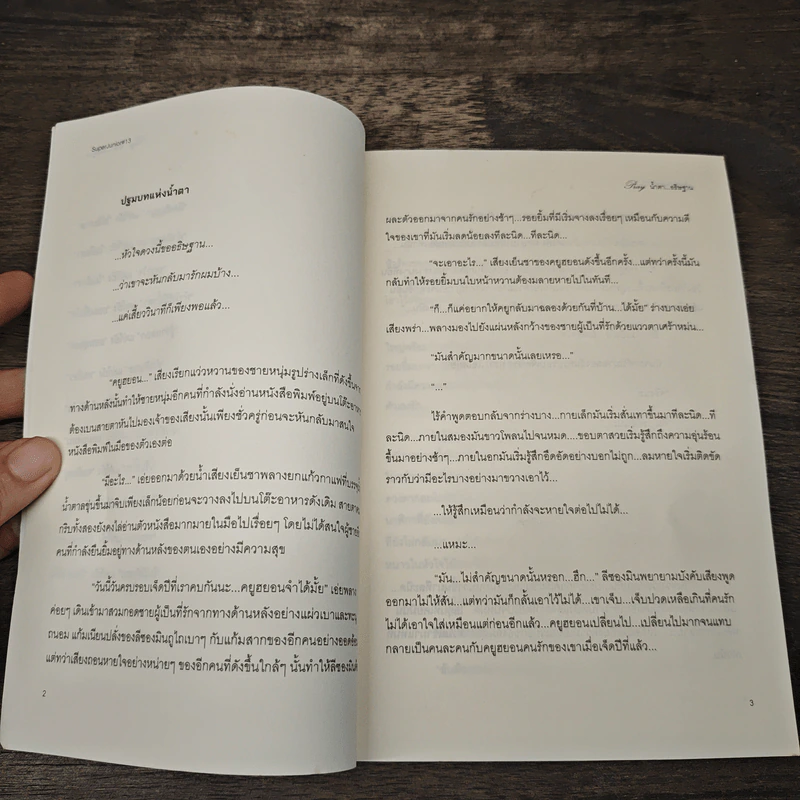 SuperJunior#13
ปฐมบทแห่งน้ำตา
...หัวใจดวงนี้ขออธิษฐาน...
...ว่าเขาจะหันกลับมารักผมบ้าง...
...แค่เสี้ยววินาทีก็เพียงพอแล้ว...
“คยูฮยอน...” เสียงเรียกแว่วหวานของชายหนุ่มรูปร่างเล็กที่ดังขึ้นจาก
ทางด้านหลังนั้นทำให้ชายหนุ่มอีกคนที่กำลังนั่งอ่านหนังสือพิมพ์อยู่บนโต๊ะอาหาร
ต้องเบนสายตาหันไปมองเจ้าของเสียงนั้นเพียงชั่วครู่ก่อนจะหันกลับมาสนใจ
หนังสือพิมพ์ในมือของตัวเองต่อ
“มีอะไร...” เอ่ยออกมาด้วยน้ำเสียงเย็นชาพลางยกแก้วกาแฟที่บรรจุ
น้ำตาลขุ่นขึ้นมาจิบเพียงเล็กน้อยก่อนจะวางลงไปบนโต๊ะอาหารดังเดิม สายตาคม
กริบทั้งสองยังคงไล่อ่านตัวหนังสือมากมายในมือไปเรื่อยๆ โดยไม่ได้สนใจผู้ชายอีก
คนที่กำลังยืนยิ้มอยู่ทางด้านหลังของตนเองอย่างมีความสุข
“วันนี้วันครบรอบเจ็ดปีที่เราคบกันนะ...คยูฮยอนจำได้มั้ย” เอ่ยพลาง
ค่อยๆ เดินเข้ามาสวมกอดชายผู้เป็นที่รักจากทางด้านหลังอย่างแผ่วเบาและทะนุ
ถนอม แก้มเนียนปลั่งของลีซองมินถูไถเบาๆ กับแก้มสากของอีกคนอย่างออดอ้อน
แต่ทว่าเสียงถอนหายใจอย่างหน่ายๆ ของอีกคนที่ดังขึ้นใกล้ๆ นั้นทำให้ลีซองมินต้อง
2
Pray น้ำตา...อธิษฐาน
ผละตัวออกมาจากคนรักอย่างช้าๆ...รอยยิ้มที่มีเริ่มจางลงเรื่อยๆ เหมือนกับความดี
ใจของเขาที่มันเริ่มลดน้อยลงทีละนิด...ทีละนิด...
“จะเอาอะไร...” เสียงเย็นชาของคยูฮยอนดังขึ้นอีกครั้ง...แต่ทว่าครั้งนี้มัน
กลับทำให้รอยยิ้มบนใบหน้าหวานต้องมลายหายไปในทันที...
“ก็...ก็แค่อยากให้คยูกลับมาฉลองด้วยกันที่บ้าน...ได้มั้ย” ร่างบางเอ่ย
เสียงพร่า...พลางมองไปยังแผ่นหลังกว้างของชายผู้เป็นที่รักด้วยแววตาเศร้าหม่น...
“มันสำคัญมากขนาดนั้นเลยเหรอ...”
“...”
ไร้คำพูดตอบกลับจากร่างบาง...กายเล็กมันเริ่มสั่นเทาขึ้นมาทีละนิด...ที
ละนิด...ภายในสมองมันขาวโพลนไปจนหมด....ขอบตาสวยเริ่มรู้สึกถึงความอุ่นร้อน
ขึ้นมาอย่างช้าๆ...ภายในอกมันเริ่มรู้สึกอึดอัดอย่างบอกไม่ถูก...ลมหายใจเริ่มติดขัด
ราวกับว่ามีอะไรบางอย่างมาขวางเอาไว้...
...ให้รู้สึกเหมือนว่ากำลังจะหายใจต่อไปไม่ได้...
...แหมะ...
“มัน...ไม่สำคัญขนาดนั้นหรอก...ฮึก...” ลีซองมินพยายามบังคับเสียงพูด
ออกมาไม่ให้สั่น...แต่ทว่ามันก็กลั้นเอาไว้ไม่ได้...เขาเจ็บ...เจ็บปวดเหลือเกินที่คนรัก
ไม่ได้เอาใจใส่เหมือนแต่ก่อนอีกแล้ว...คยูฮยอนเปลี่ยนไป...เปลี่ยนไปมากจนแทบ
กลายเป็นคนละคนกับคยูฮยอนคนรักของเขาเมื่อเจ็ดปีที่แล้ว...
3